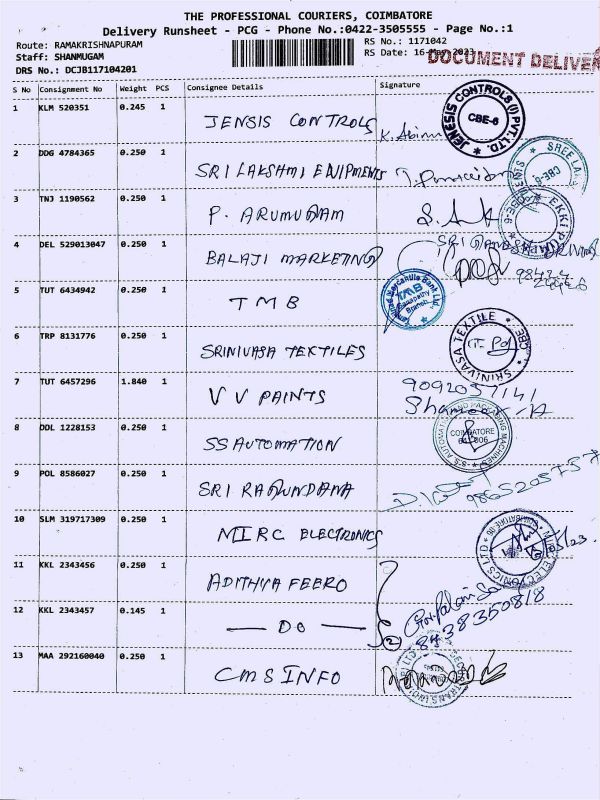 THE PROFESSIONAL COURIERS, COIMBATORE
Delivery Runsheet - PCG - Phone No.:0422-3505555 - Page No.:1
Route: RAMAKRISHNAPURAM
RS No.: 1171042
Staff: SHANMUGAM
RS Date: 16-May-2023
DOCUMENT DELIVER
DRS No.: DCJB117104201
S No Consignment No Weight PCS Consignee Details Signature
1 KLM 520351 0.245 1 JENSIS CONTROLS K. Abi
JENESIS CONTROLS (I) PVT. LTD. CBE-6
2 DDG 4784365 0.250 1 SRI LAKSHMI EQIPMENTS
SHREE LAK CBE-6
3 TNJ 1190562 0.250 1 P. ARUMUGAM
EKKI P
4 DEL 529013047 0.250 1 BALAJI MARKETING SRI GANESH
98424
5 TUT 6434942 0.250 1 TMB
Mercantile Bank Ltd. TMB Ganapathy Branch
6 TRP 8131776 0.250 1 SRINIVASA TEXTILES
SRINIVASA TEXTILE CBE
7 TUT 6457296 1.840 1 VV PAINTS 9092057141
8 DDL 1228153 0.250 1 SS AUTOMATION
S.S. AUTOMATION AND PACKAGING MACHINES COIMBATORE 641 006
9 POL 8586027 0.250 1 SRI RAGUNDANA 9865205757
10 SLM 319717309 0.250 1 MIRC ELECTRONICS
MIRC ELECTRONICS LTD COIMBATORE
11 KKL 2343456 0.250 1 ADITHYA FEERO
12 KKL 2343457 0.145 1 — DO — 2 8438350818
13 MAA 292160040 0.250 1 CMS INFO